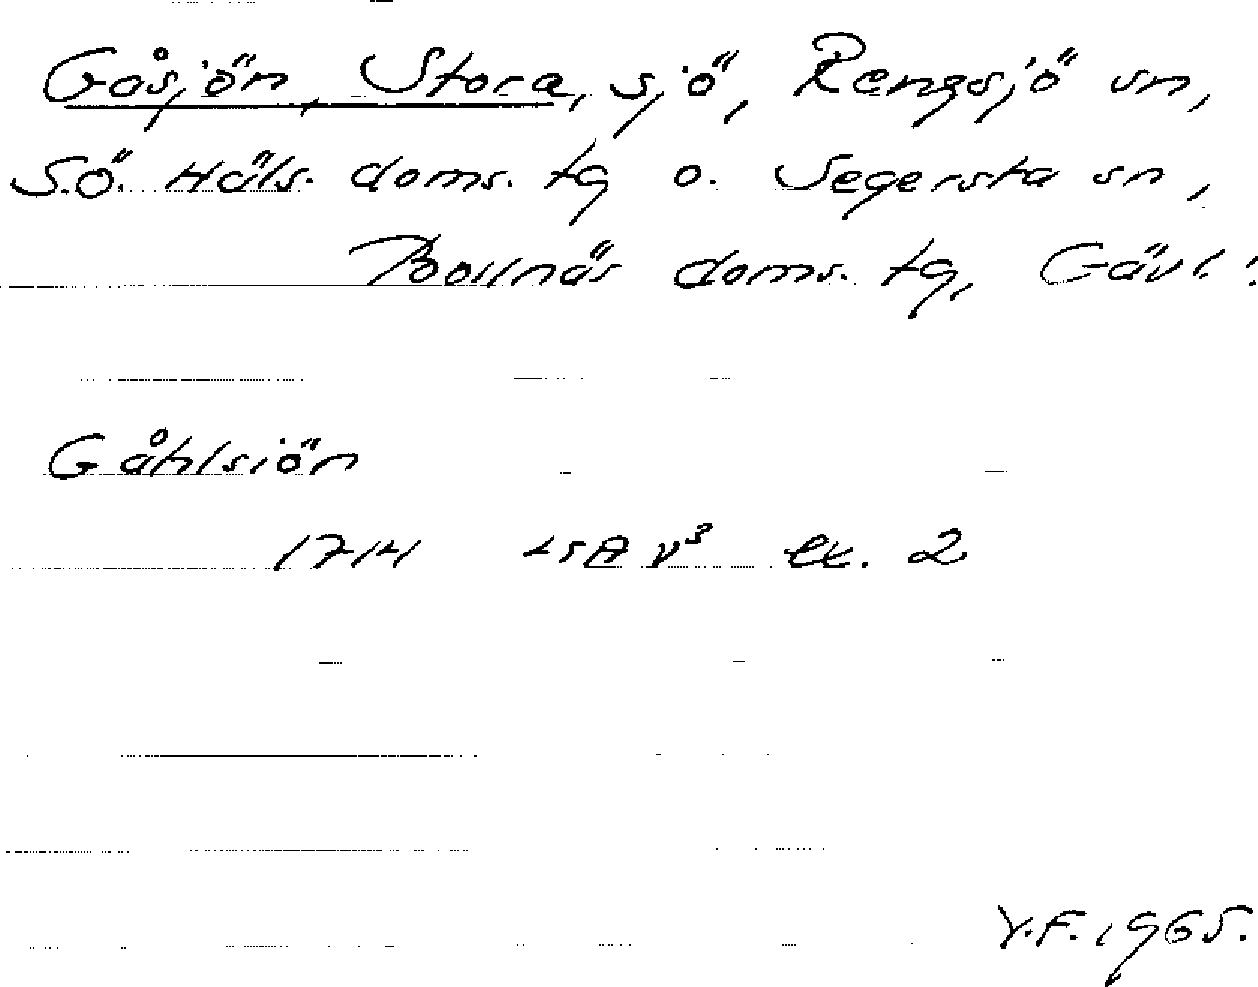 Gåsjön, Stora, sjö, Rengsjö sn,
S.Ö. Häls. doms. tg o. Segersta sn,
Bollnäs doms. tg, Gävl.:
Gåhlsiön
1714 LSA v³ ex. 2
Y.F. 1965.